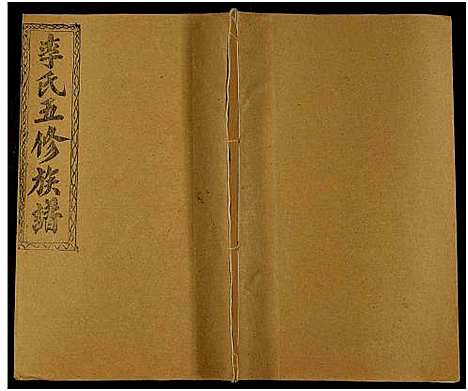 李氏五修族譜